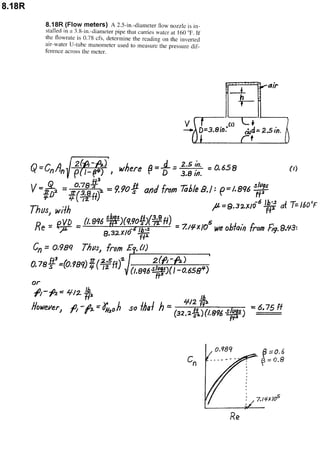 8.18R
8.18R (Flow meters) A 2.5-in.-diameter flow nozzle is in-
stalled in a 3.8-in.-diameter pipe that carries water at 160 °F. If
the flowrate is 0.78 cfs, determine the reading on the inverted
air-water U-tube manometer used to measure the pressure dif-
ference across the meter.
air
h
V (1) D=3.8in. d = 2.5 in.
Q = Cn An √(2(p₁-p₂) / ρ(1-β⁴)) , where β = d/D = 2.5 in. / 3.8 in. = 0.658 (1)
V = Q / (π/4 D²) = 0.78 ft³/s / (π/4 (3.8/12 ft)²) = 9.90 ft/s and from Table B.1: ρ = 1.896 slugs/ft³
Thus, with μ = 8.32×10⁻⁶ lb·s/ft² at T=160°F
Re = ρVD/μ = (1.896 slugs/ft³)(9.90 ft/s)(3.8/12 ft) / 8.32×10⁻⁶ lb·s/ft² = 7.14×10⁵ we obtain from Fig. 8.43:
Cn = 0.989 Thus, from Eq. (1)
0.78 ft³/s = (0.989) π/4 (2.5/12 ft)² √(2(p₁-p₂) / (1.896 slugs/ft³)(1-0.658⁴))
or
p₁-p₂ = 412 lb/ft²
However, p₁-p₂ = γH₂O h so that h = 412 lb/ft² / (32.2 ft/s²)(1.896 slugs/ft³) = 6.75 ft
0.989 β = 0.6
Cn β = 0.8
7.14×10⁵
Re